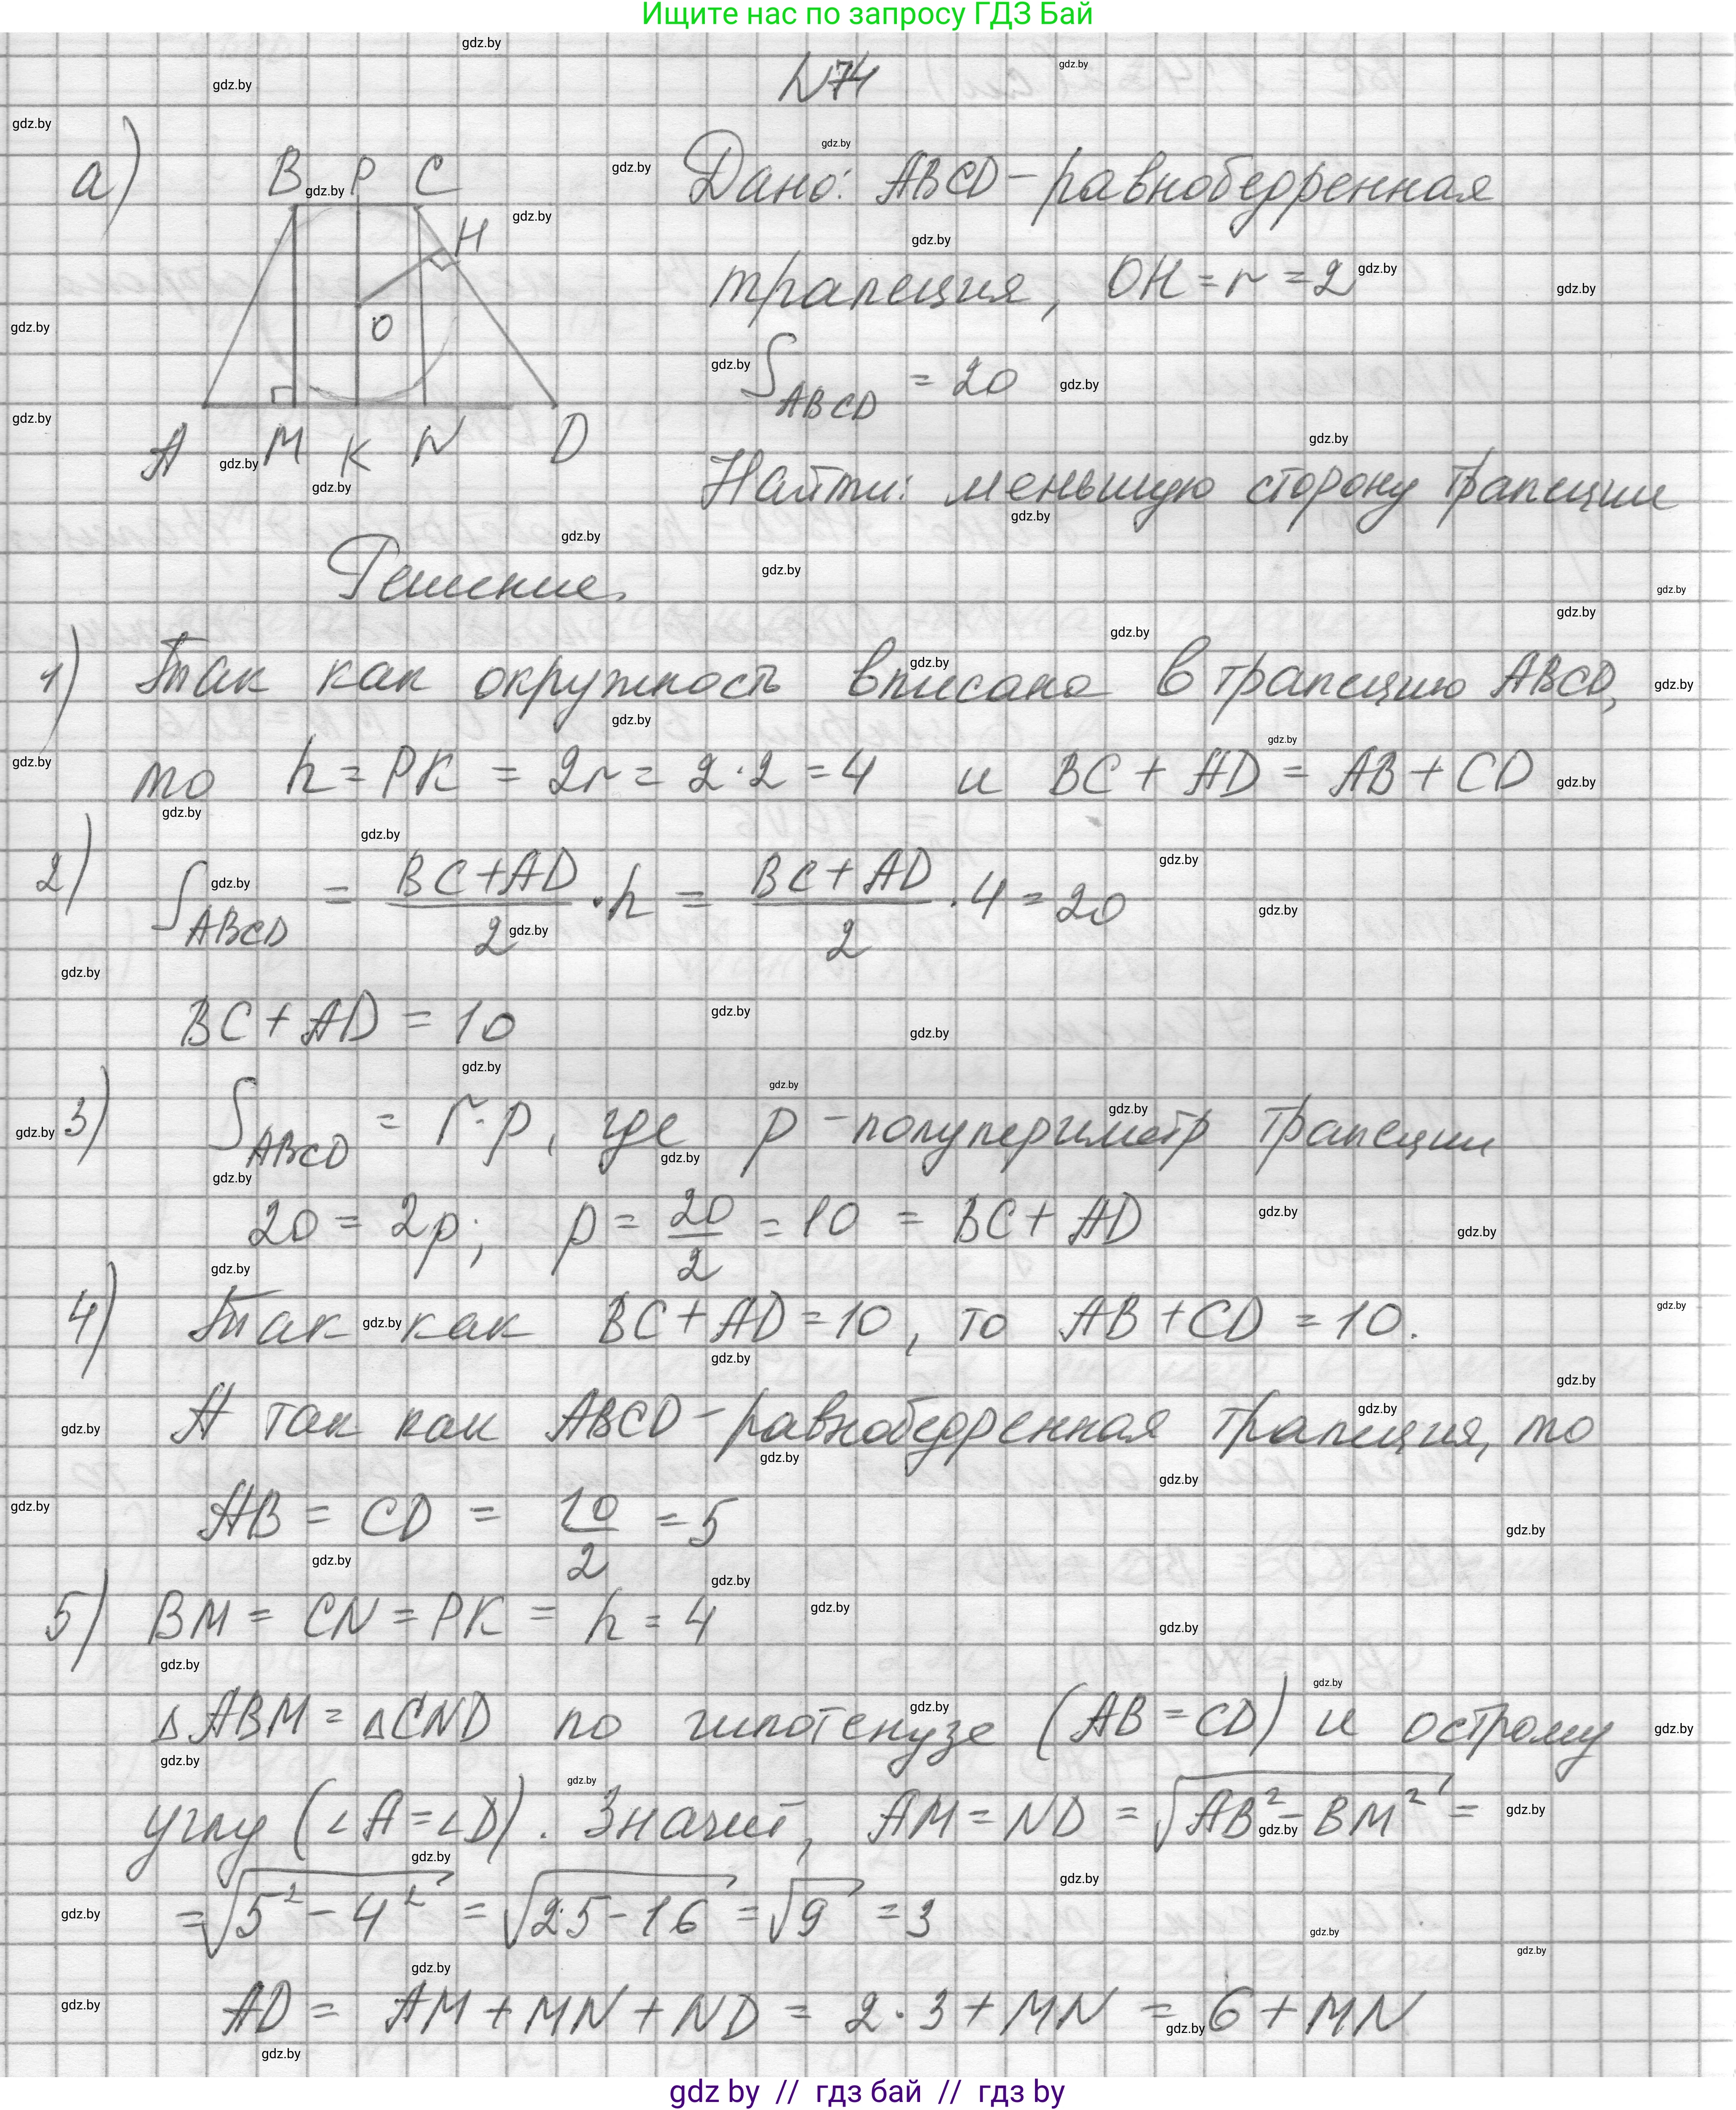 Ищите нас по запросу ГДЗ Бай
N74
а)
B P C
H
O
A M K N D
Дано: ABCD - равнобедренная
трапеция, OH = r = 2
S_ABCD = 20
Найти: меньшую сторону трапеции
Решение.
1) Так как окружность вписана в трапецию ABCD,
то h = PK = 2r = 2·2 = 4 и BC + AD = AB + CD
2) S_ABCD = (BC+AD)/2 · h = (BC+AD)/2 · 4 = 20
BC + AD = 10
3) S_ABCD = r·p, где p - полупериметр трапеции
20 = 2p; p = 20/2 = 10 = BC + AD
4) Так как BC + AD = 10, то AB + CD = 10.
А так как ABCD - равнобедренная трапеция, то
AB = CD = 10/2 = 5
5) BM = CN = PK = h = 4
△ABM = △CND по гипотенузе (AB = CD) и острому
углу (∠A = ∠D). Значит, AM = ND = √(AB² - BM²) =
= √(5² - 4²) = √(25 - 16) = √9 = 3
AD = AM + MN + ND = 2·3 + MN = 6 + MN
gdz by // гдз бай // гдз by